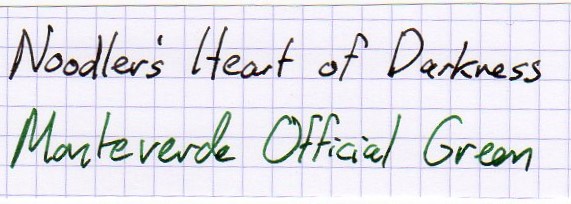 Noodler's Heart of Darkness
Monteverde Official Green